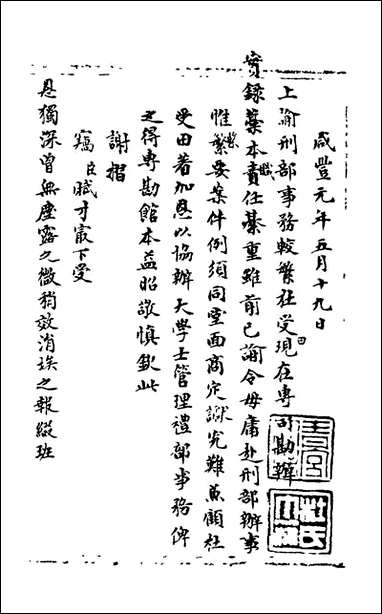 咸豐元年五月十九日
上諭刑部事務較繁杜受田現在專司勘辦
實錄稾本責任綦重雖前已諭令毋庸赴刑部辦事
惟繁要案件例須同堂面商定讞究難兼顧杜
受田著加恩以協辦大學士管理禮部事務俾
之得專勘館本益昭敬慎欽此
謝摺
竊臣賦才最下受
恩獨深曾無塵露之微稍效涓埃之報綴班